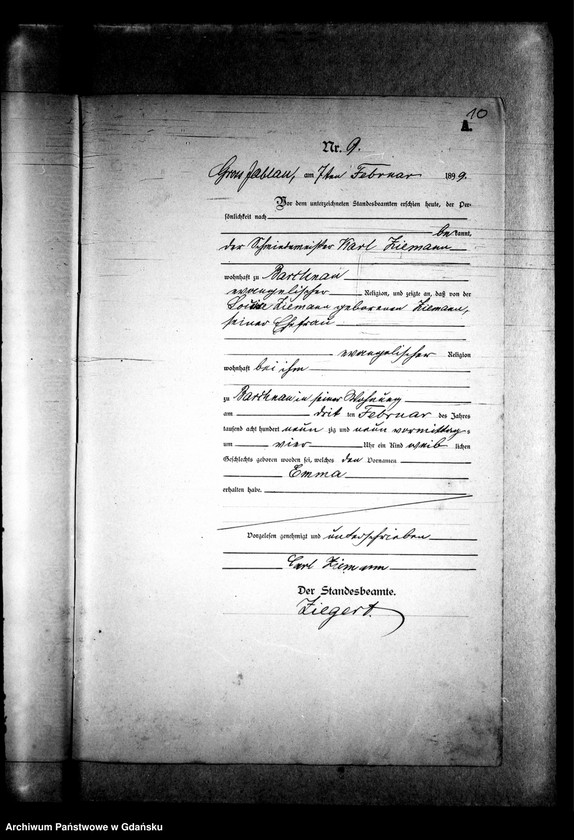 10
A.
Nr. 9.
Gross Jablau, am 7ten Februar 1899.
Vor dem unterzeichneten Standesbeamten erschien heute, der Per-
sönlichkeit nach
bekannt,
der Schmiedemeister Karl Ziemann
wohnhaft zu Barchnau
evangelischer Religion, und zeigte an, daß von der
Louise Ziemann geborenen Ziemann,
seiner Ehefrau
evangelischer Religion
wohnhaft bei ihm
zu Barchnau in seiner Wohnung
am dritten Februar des Jahres
tausend acht hundert neunzig und neun vormittags
um vier Uhr ein Kind weiblichen
Geschlechts geboren worden sei, welches den Vornamen
Emma
erhalten habe.
Vorgelesen genehmigt und unterschrieben
Carl Ziemann
Der Standesbeamte.
Ziegert.
Archiwum Państwowe w Gdańsku